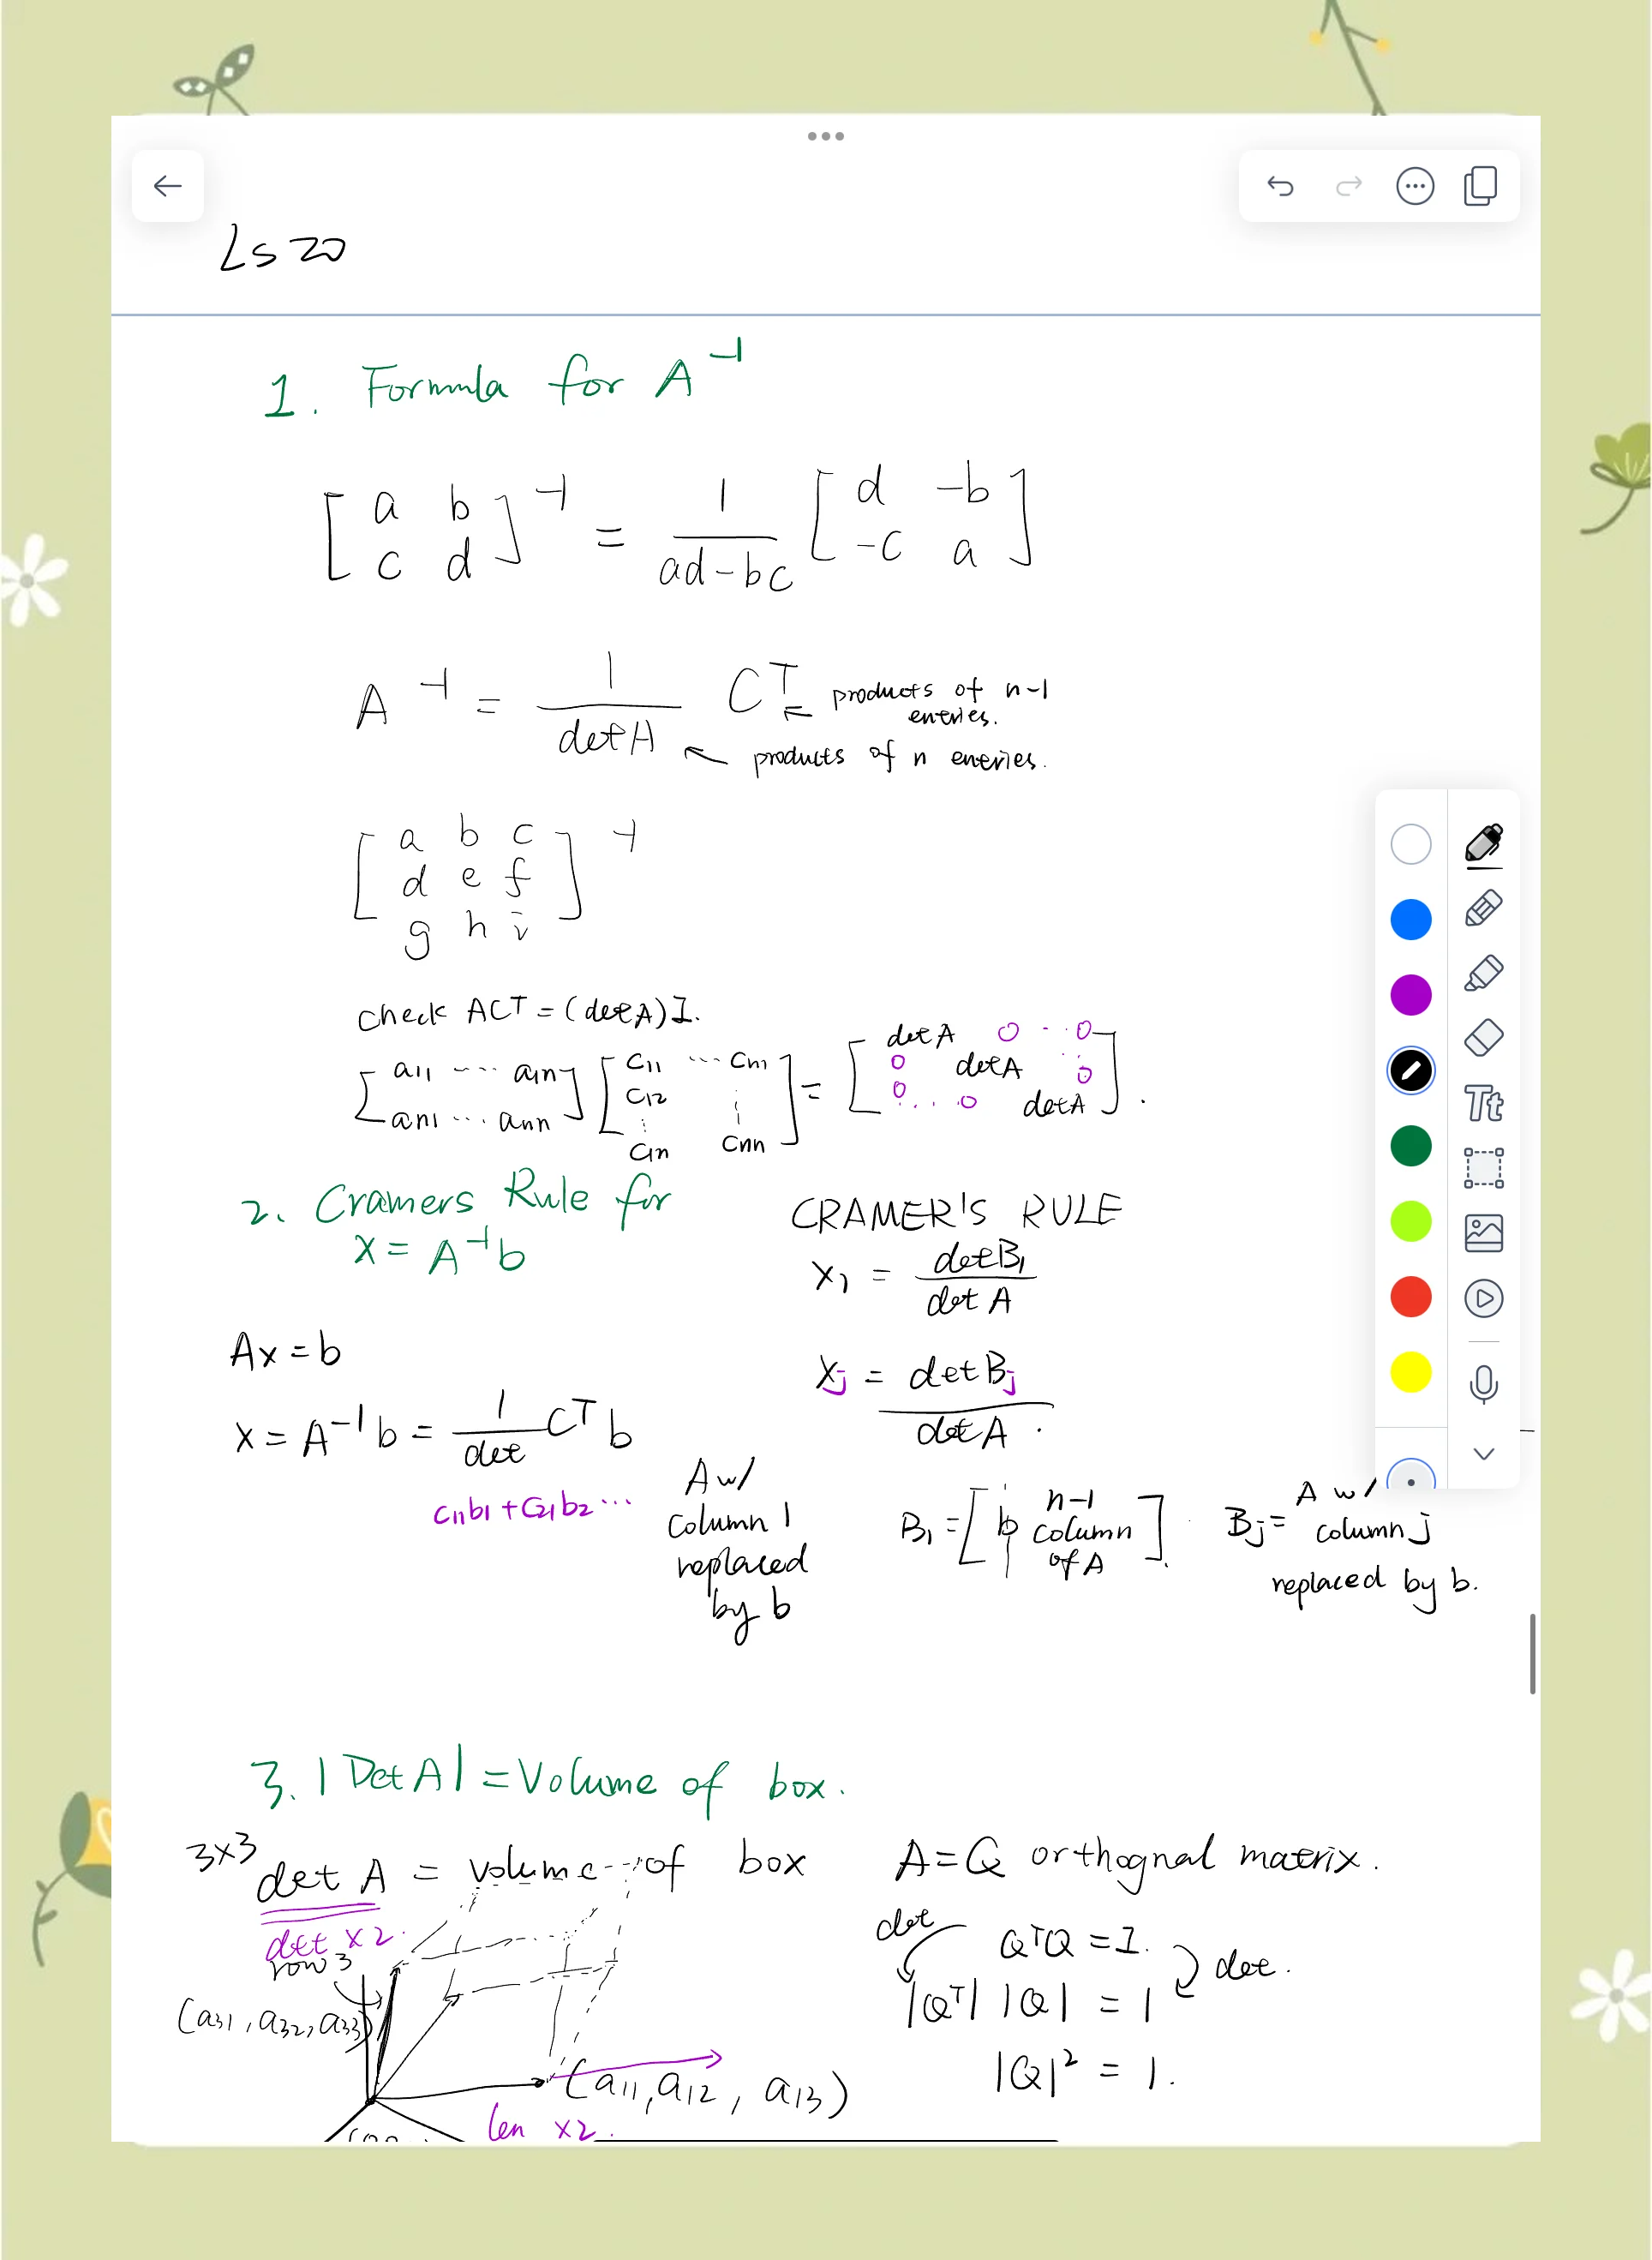 Ls 20
1. Formula for A⁻¹
[a b; c d]⁻¹ = 1/(ad-bc) [d -b; -c a]
A⁻¹ = 1/detA Cᵀ ← products of n-1 entries.
← products of n entries.
[a b c; d e f; g h i]⁻¹
check ACT = (det A) I.
[a11 ---- a1n; an1 ... ann] [C11 ... Cn1; C12 ⋮; ⋮; C1n Cnn] = [detA 0 ·· 0; 0 detA 0; 0 ... 0 detA].
2. Cramers Rule for
X = A⁻¹b
Ax = b
X = A⁻¹b = 1/det Cᵀb
C11b1 + C21b2 ...
CRAMER'S RULE
X1 = detB1/det A
Xj = detBj/detA.
A w/
column 1
replaced
by b
B1 = [b n-1 column of A].
Bj = A w/
column j
replaced by b.
3. |Det A| = Volume of box.
3x3 det A = volume of box
det x2
row 3
(a31, a32, a33)
(a11, a12, a13)
len x2.
A = Q orthognal matrix.
det
QᵀQ = I.
det.
|Qᵀ| |Q| = 1
|Q|² = 1.
Tt